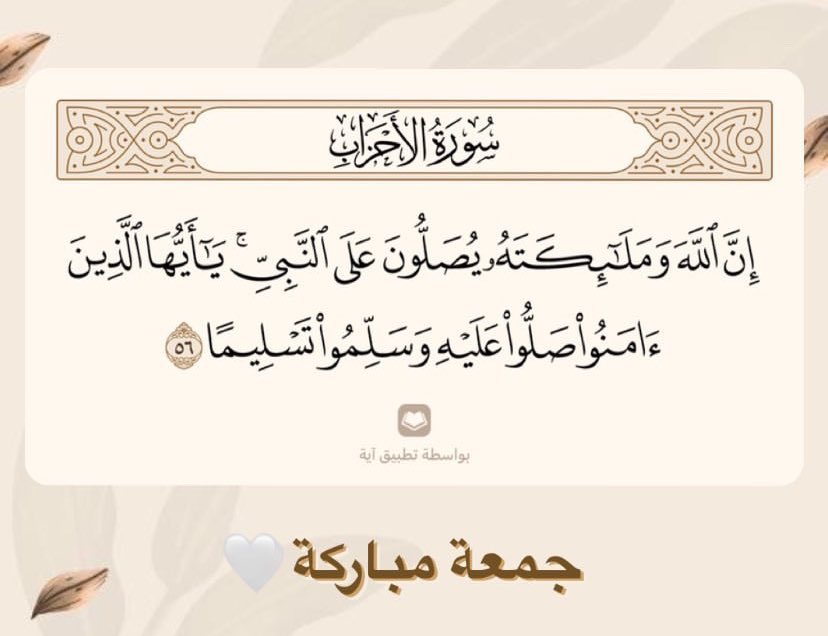 سُورَةُ الأَحْزَابِ
إِنَّ ٱللَّهَ وَمَلَٰٓئِكَتَهُۥ يُصَلُّونَ عَلَى ٱلنَّبِىِّۚ يَٰٓأَيُّهَا ٱلَّذِينَ
ءَامَنُوا۟ صَلُّوا۟ عَلَيْهِ وَسَلِّمُوا۟ تَسْلِيمًا ٥٦
بواسطة تطبيق آية
جمعة مباركة 🤍